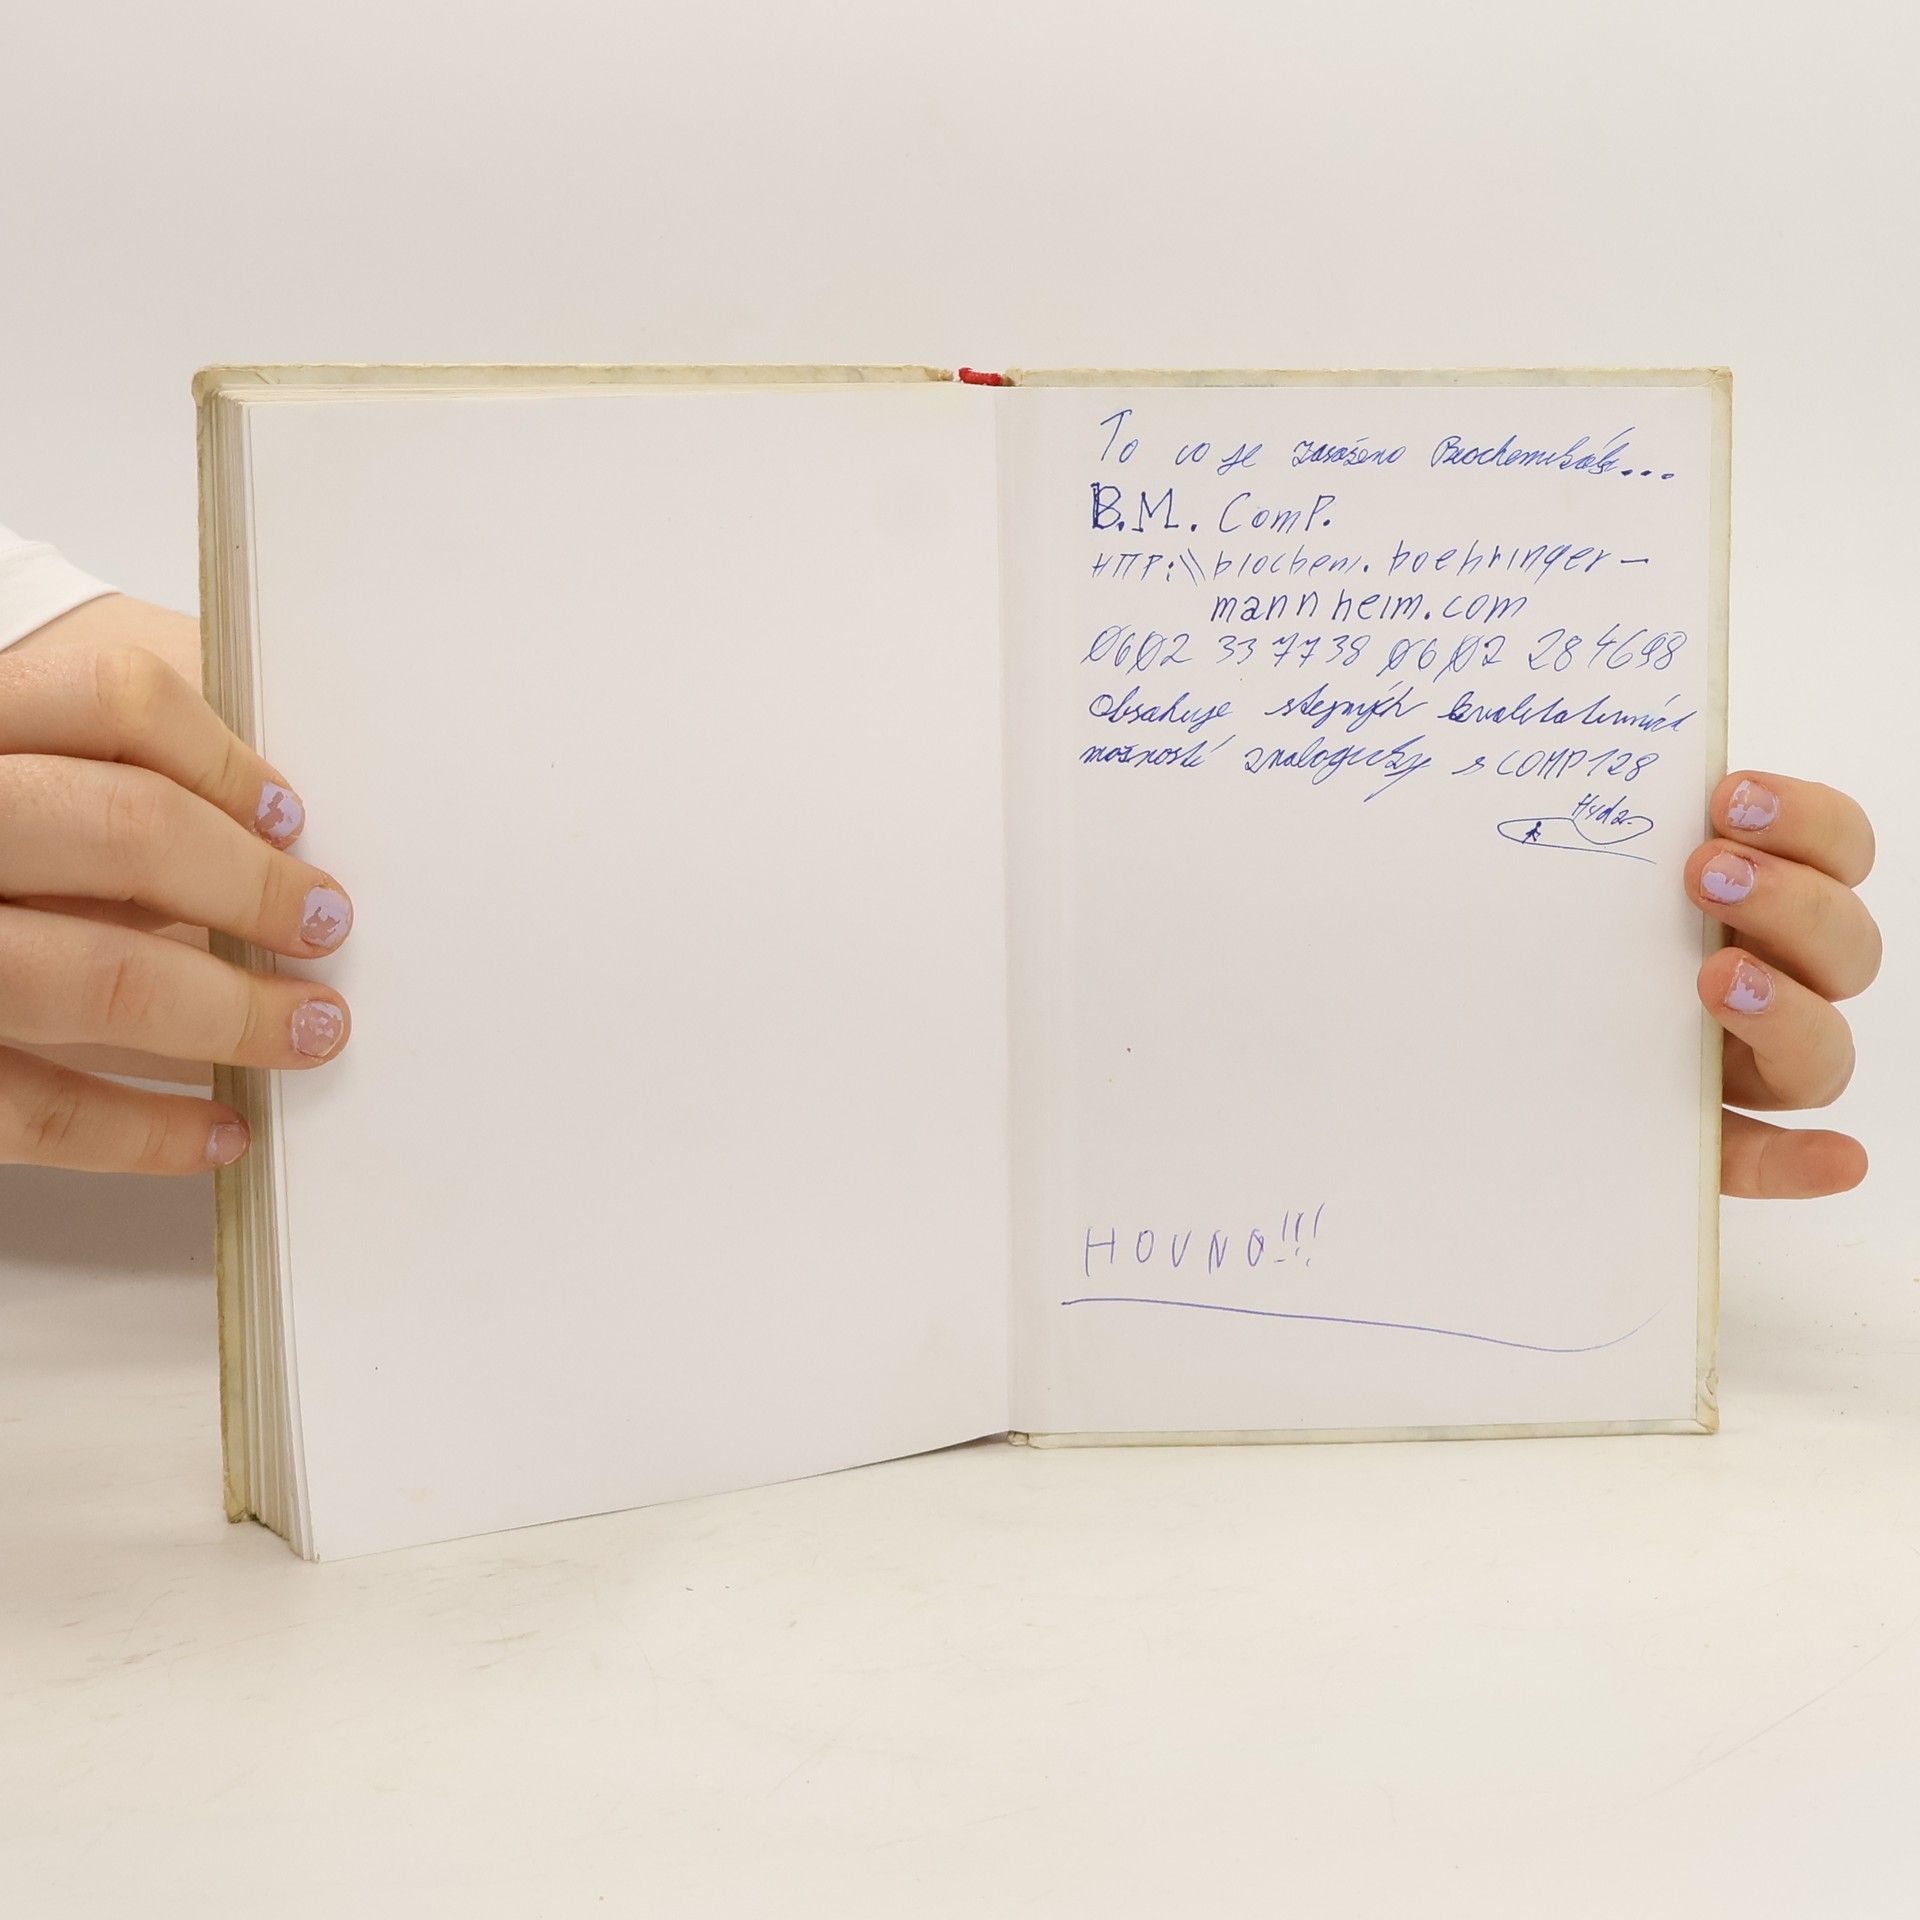 To co je zasaženo
B.M. Comp.
HTTP:\\biochem.boehringer-
mannheim.com
0602 337738 0602 284698
Obsahuje stejných kvalitativních
možností analogicky s COMP128
Hydr.
HOVNO!!!